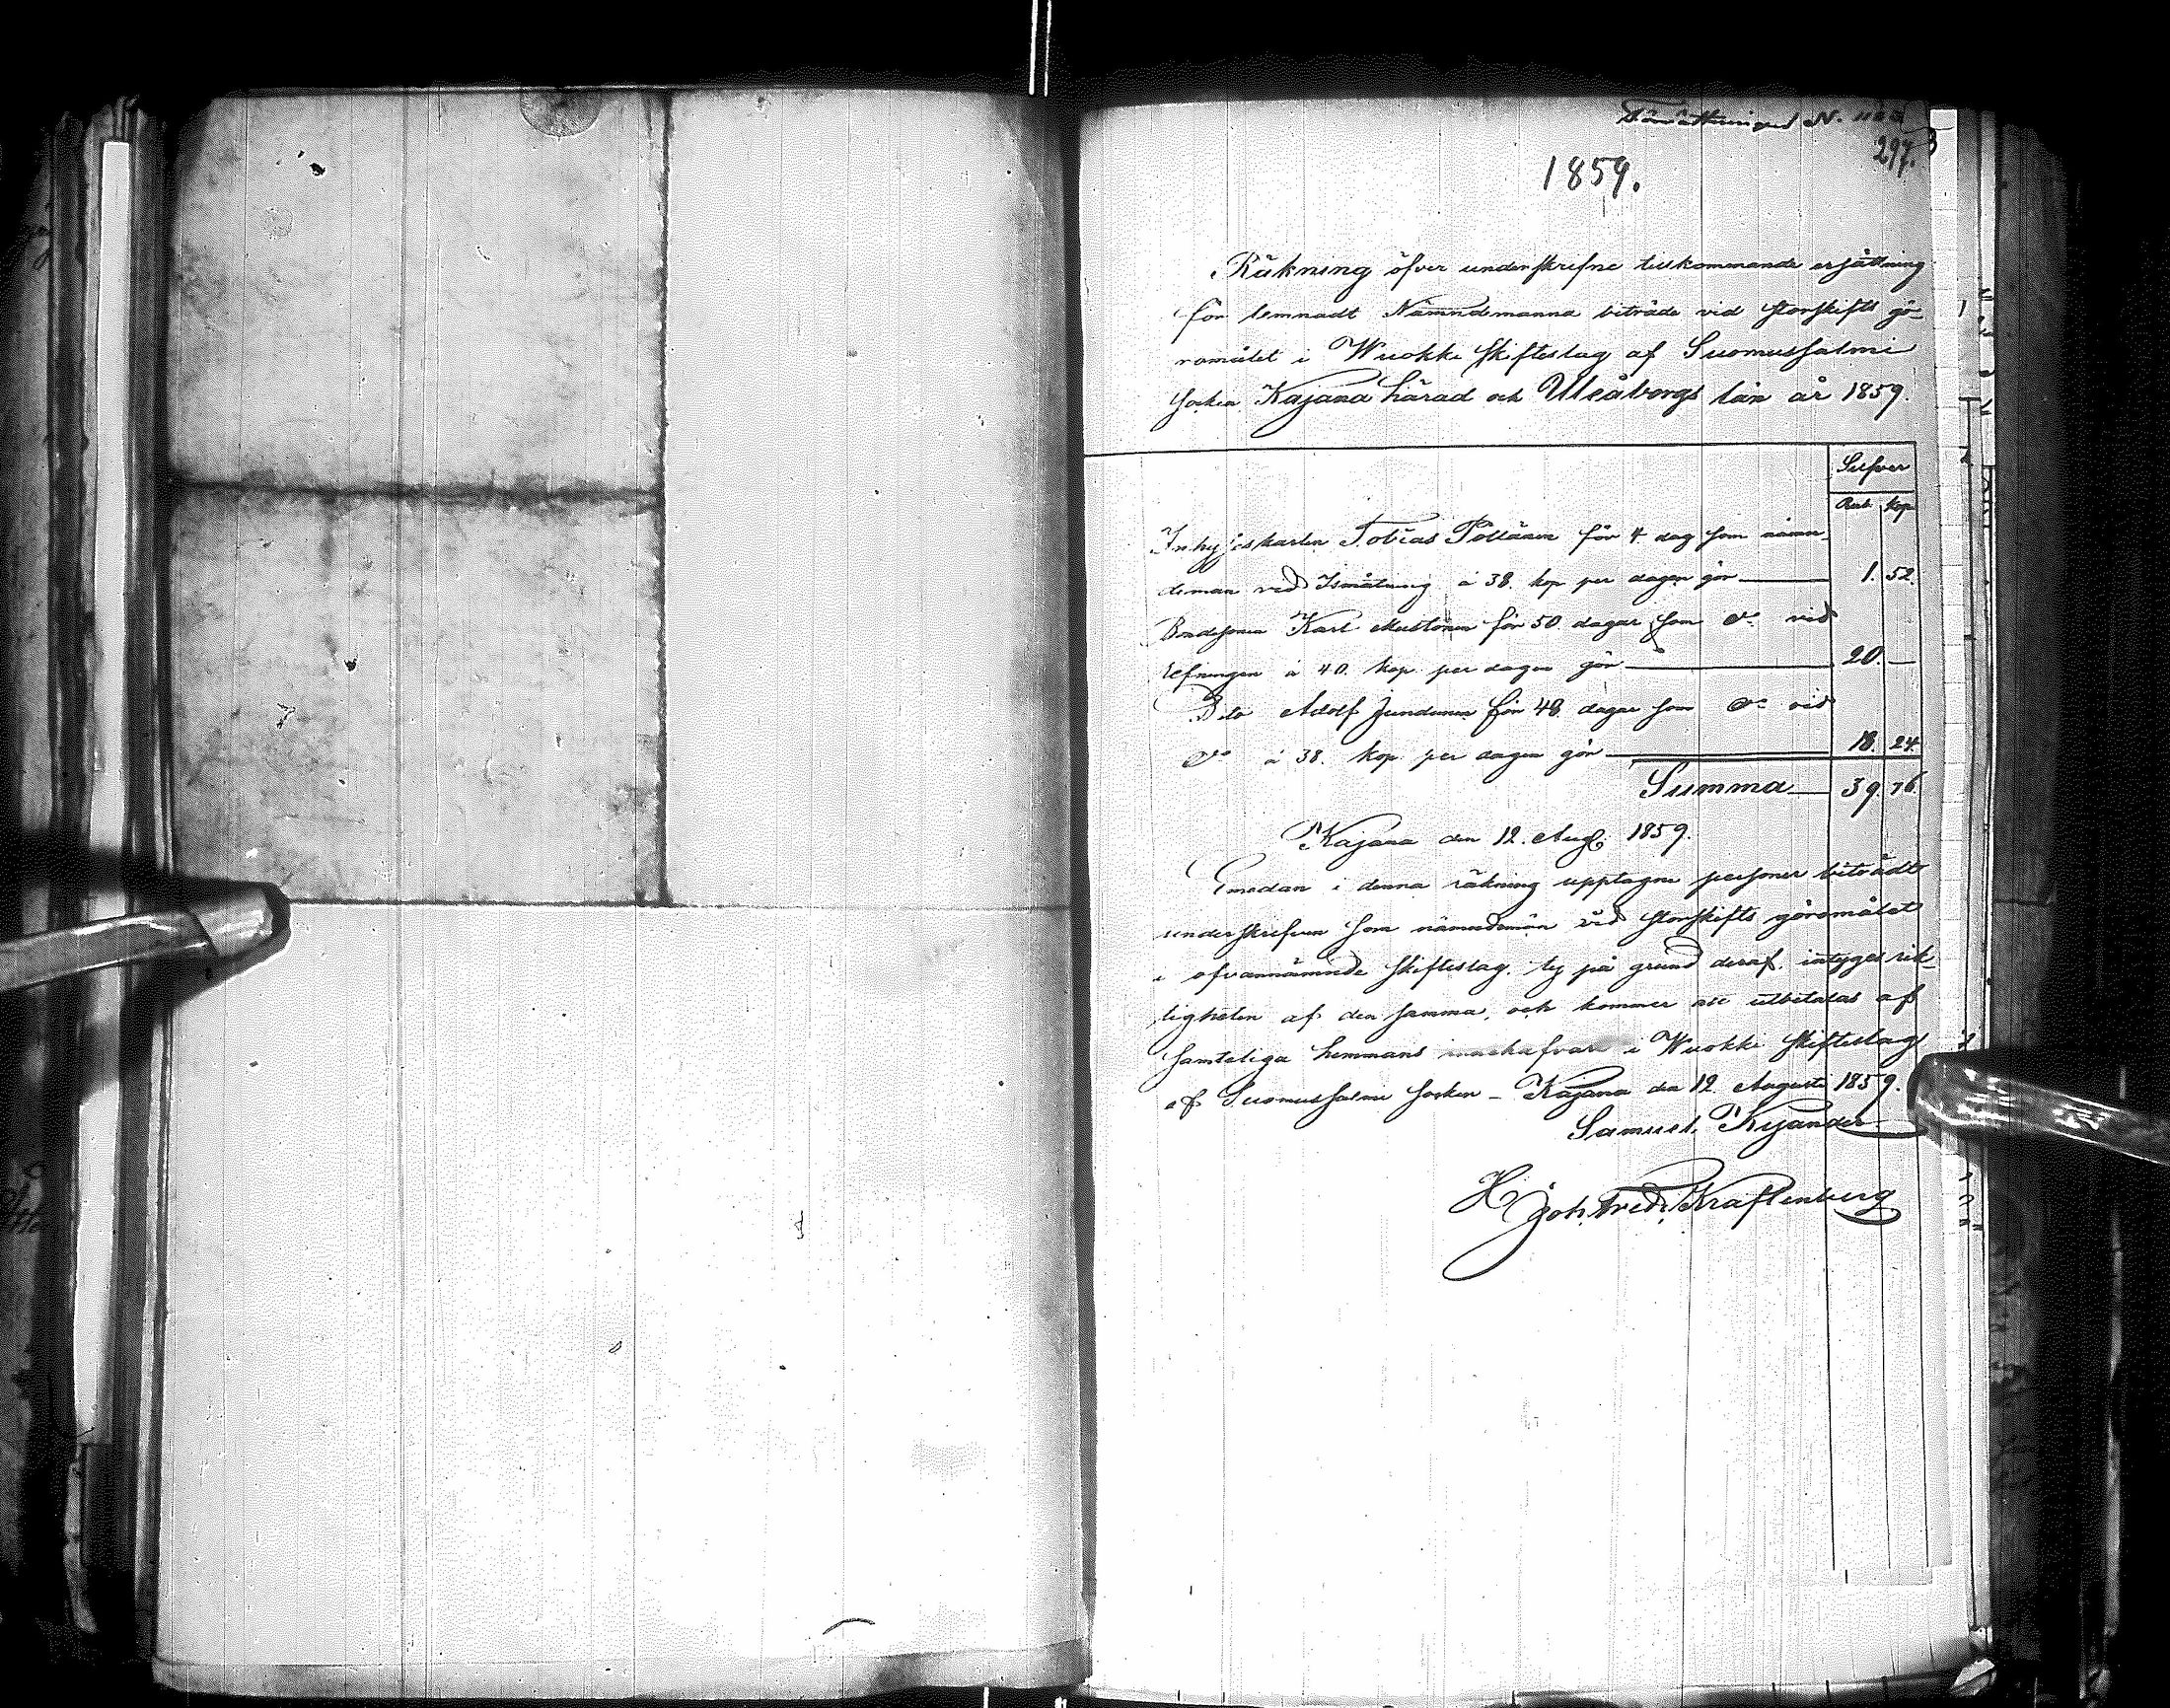 Förrättningens N.
297.
1859.
Räkning öfver underskrefne tillkommande ersättning
för lemnadt Nämndemanna biträde vid storskifts gö-
romålet i Wuokki skifteslag af Suomussalmi
socken Kajana härad och Uleåborgs län år 1859.
Silfver
Rub. Kop.
Inhyseskarlen Tobias Pöllänen för 4 dag som nämn-
deman vid Ismätning à 38. kop per dagen gör 1. 52.
Bondesonen Karl Mustonen för 50 dagar som do vid
Refningen à 40. kop. per dagen gör 20. —
Dito Adolf Jundunen för 48. dagar som do vid
do à 38. kop per dagen gör 18. 24.
Summa 39. 76.
Kajana den 12. Aug. 1859.
Emedan i denna räkning upptagne personer biträdt
underskrefven som nämndemän vid storskifts göromålet
i ofvannämnde skifteslag. ty på grund deraf. intygas rik-
tigheten af den samma, och kommer att utbetalas af
samteliga hemmans innehafvare i Wuokki skifteslag
af Suomussalmi socken – Kajana den 12 Augusti 1859.
Samuel Kyander
Joh. Fredr. Kraftenberg